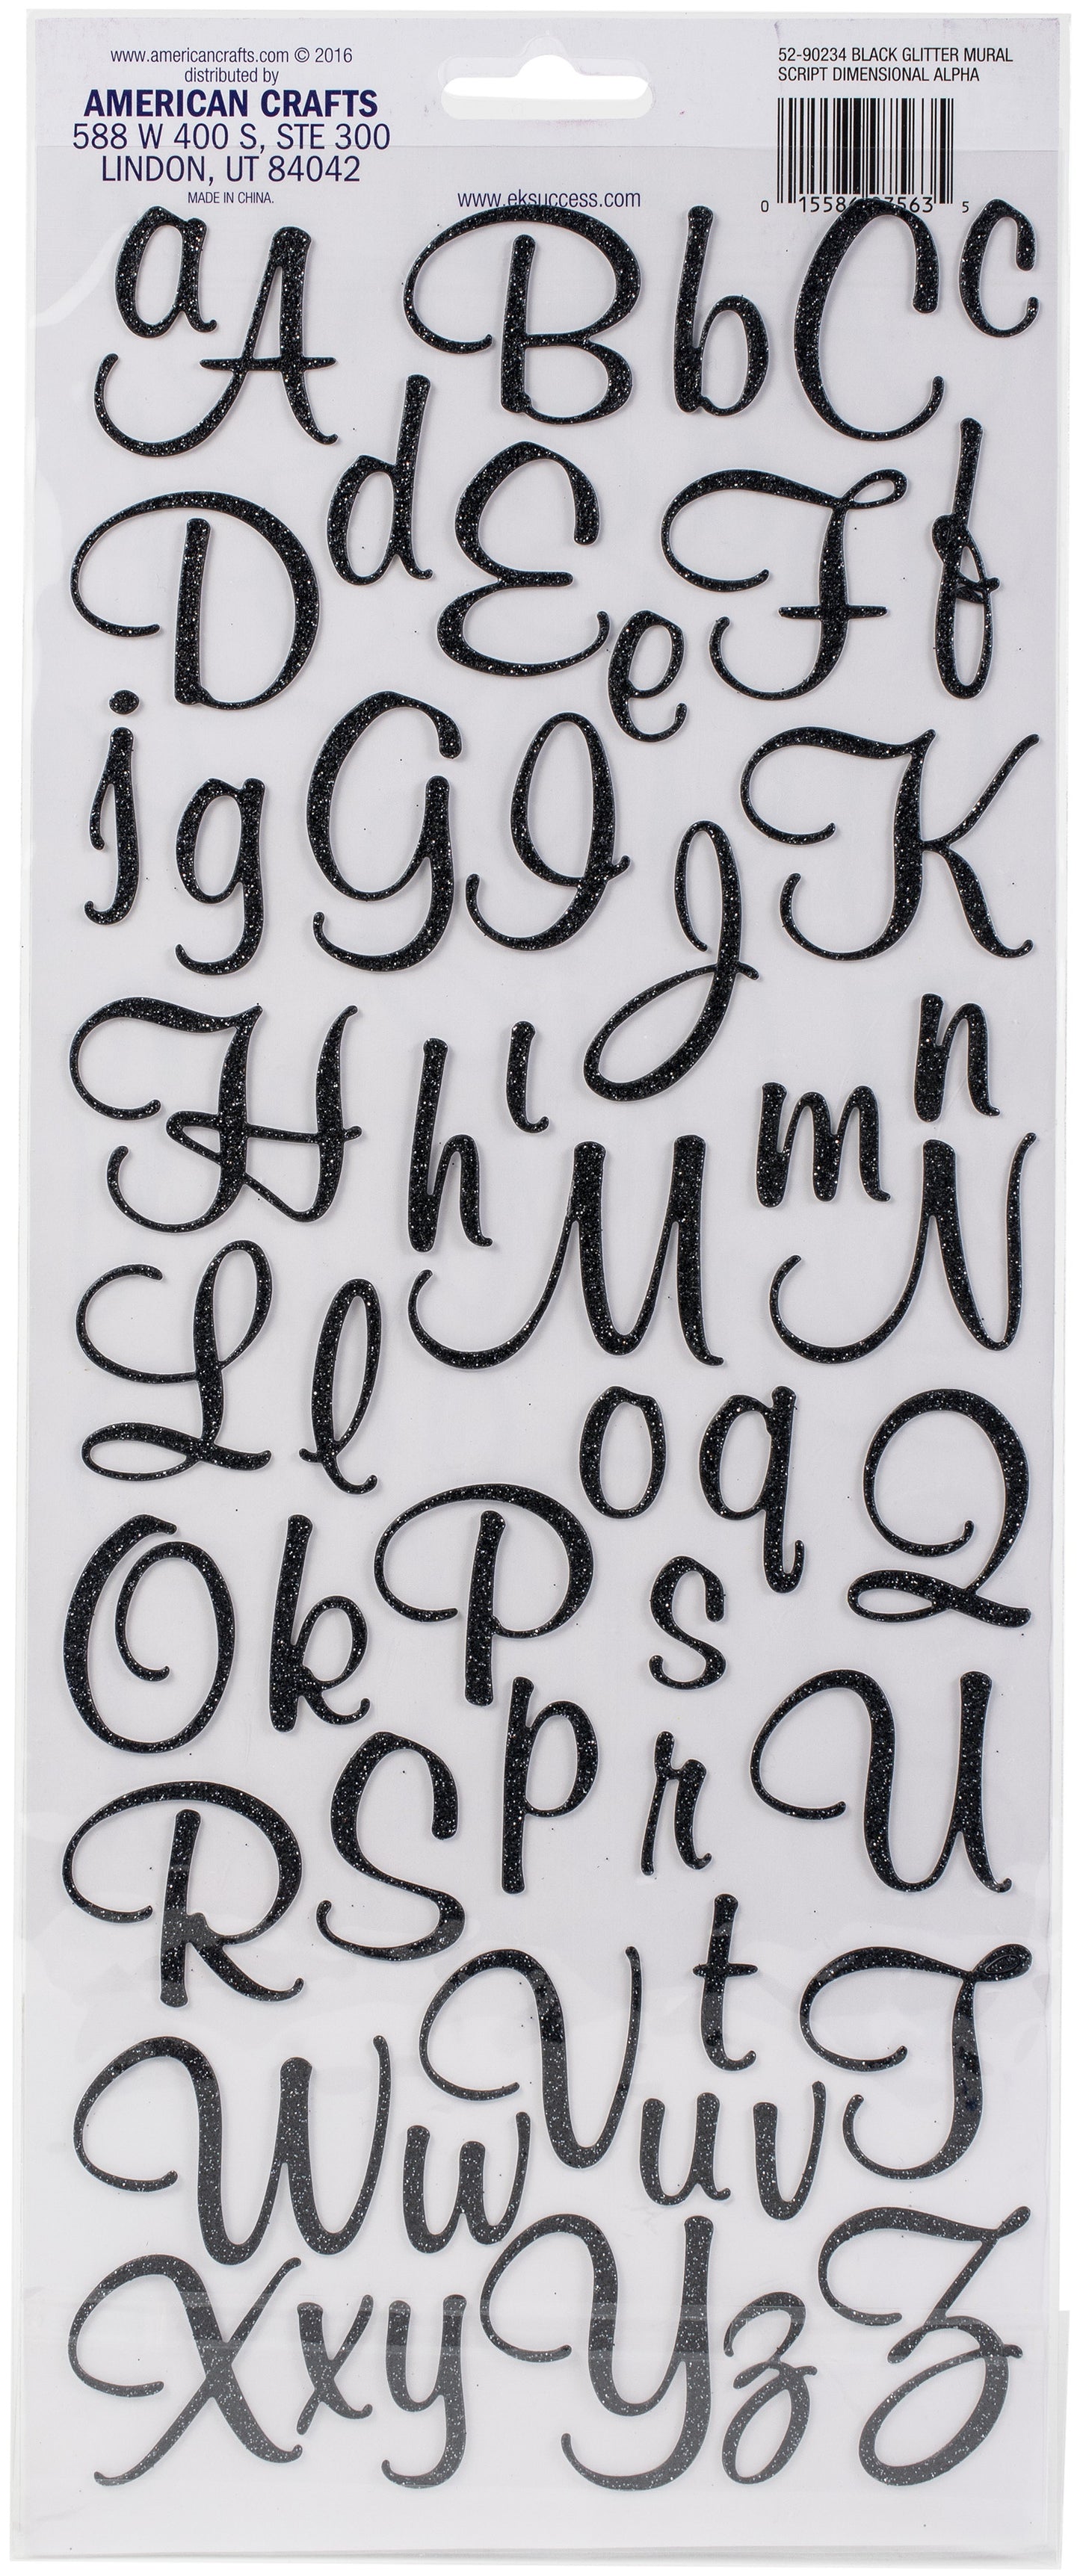 www.americancrafts.com © 2016
distributed by
AMERICAN CRAFTS
588 W 400 S, STE 300
LINDON, UT 84042
MADE IN CHINA.
www.eksuccess.com
52-90234 BLACK GLITTER MURAL
SCRIPT DIMENSIONAL ALPHA
a A B b C c
D d E e F f
j g G I J K
H h i M m n N
L l o q Q
O k P p s r U
R S V t T
W w u v
X x y Y z Z